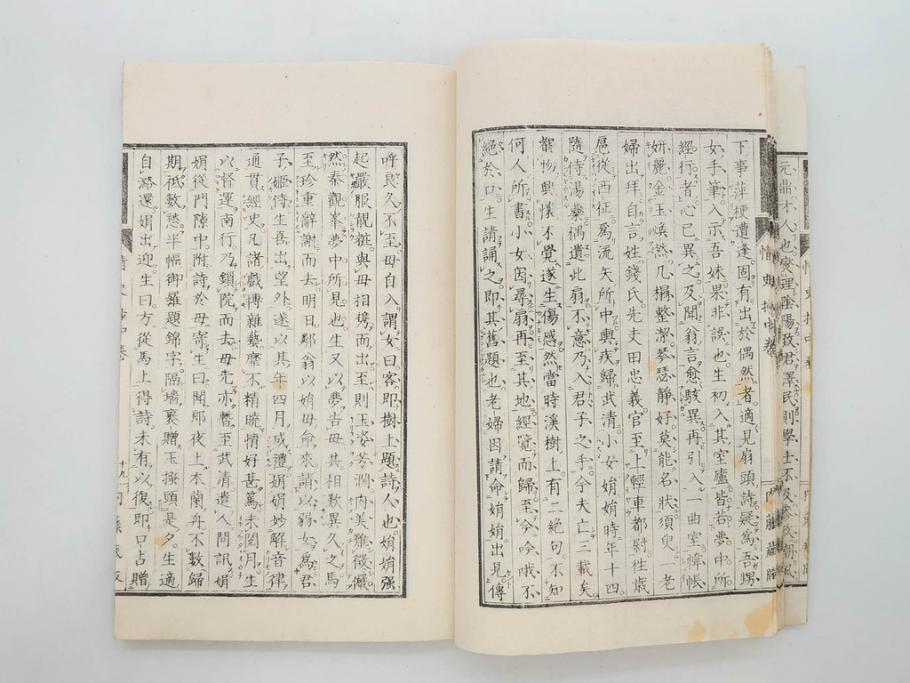 下事萍梗遭逢固有出於偶然者適見扇頭詩疑爲吾甥
女手筆入示吾妹果非誤也生初入其室廬皆若夢中所
經行者心已異之及聞翁言愈駭異再引入一曲室幃帳
妍麗金玉煥然几榻整潔琴瑟靜好莫能名狀須臾一老
婦出拜自言姓錢氏先夫田忠義官至上輕車都尉徃歲
扈從西征爲流矢所中輿疾歸武清小女娟娟時年十四
隨侍湯藥偶遺此扇不意乃入君子之手今夫亡三載矣
覩物興懷不覺遂生傷感然當時溪樹上有二絶句不知
何人所書小女因尋扇再至其地經覽而歸至今吟哦不
絶於口生請誦之即其舊題也老婦因請命娟娟出見傳
呼良久不至母自入謂女曰客即樹上題詩人也娟娟强
起嚴服靚粧與母相攜而出至則玉姿芳潤内美難徴灑
然秦觀峯夢中所見也生又以夢告母其相歎異久之馬
至珍重辭謝而去明日鄒翁以娟母命來請以弱女爲君
子姬侍生喜出望外遂以其年四月成禮娟娟妙解音律
通貫經史凡諸戲博雜藝靡不精曉情好甚篤未閱月生
以督運南行乃鎖院而去母先亦暫至武清遣人問訊娟
娟從門隙中附詩於母寄生曰聞郎夜上木蘭舟不數歸
期祗數愁半幅御羅題錦字隔墻裹贈玉搔頭是夕生適
自潞還娟出迎生曰方從馬上得詩未有以復即口占贈